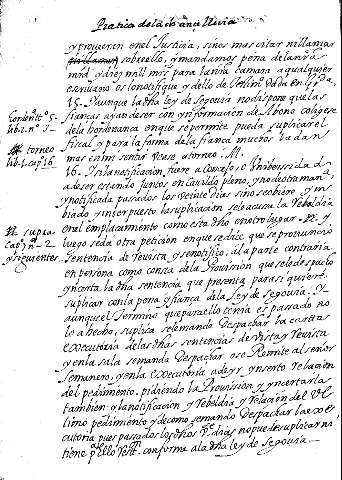 Practica de la chancilleria
y provean en el Justicia, sin os mas citar ni llamar
sobre ello, y mandamos pena de la nra
mrd y diez mill mrs para la nra camara a qualquier
escrivano os lo notifique, y dello de testim.º dada en
15. Aunque la dha ley de Segovia no dispone que las
fianças ayan de ser con ynformacion de Abono colixese
de la hordenanca en que se permite pueda suplicar el
fiscal y para la forma de la fiança muchos la dan
mas en mi sentir
lib. 1. cap. 16
16. Si la notificacion, fuere a Consejo, o Universidad
a de ser estando juntos en Cavildo pleno, y no de otra man.ª
y notificada pasados los veinte dias sino se obiere
biado y interpuesto la suplicacion se le acusa la Rebeldia
en el emplaçamiento como esta dho en otro lugar.
ut supra
y siguientes
luego se da otra peticion en que se dice que se pronuncio
Sentencia de Revista, y se notifico, a la parte contraria
en persona como consta de la Provission que se le despacho
y ncerta la dha sentencia que presenta para si quiere
suplicar con la pena y fiança de la ley de Segovia. Y
aunque el termino que para ello tenia es passado no
lo a hecho, suplica se le mande Despachar la carta
executoria de las dhas sentencias de vista y revista
y en la sala se manda Despachar o se Remite al señor
Semanero, y en la executoria a de yr ynserto relacion
del pedimento, pidiendo la Provission y ncertarla
tambien y la notificacion y Rebeldia y Relacion del Ul
timo pedimiento y de como se mando Despachar la exe
cutoria pues pasados los dhos dias no puede suplicar ni
tiene conforme a la dha ley de Segovia